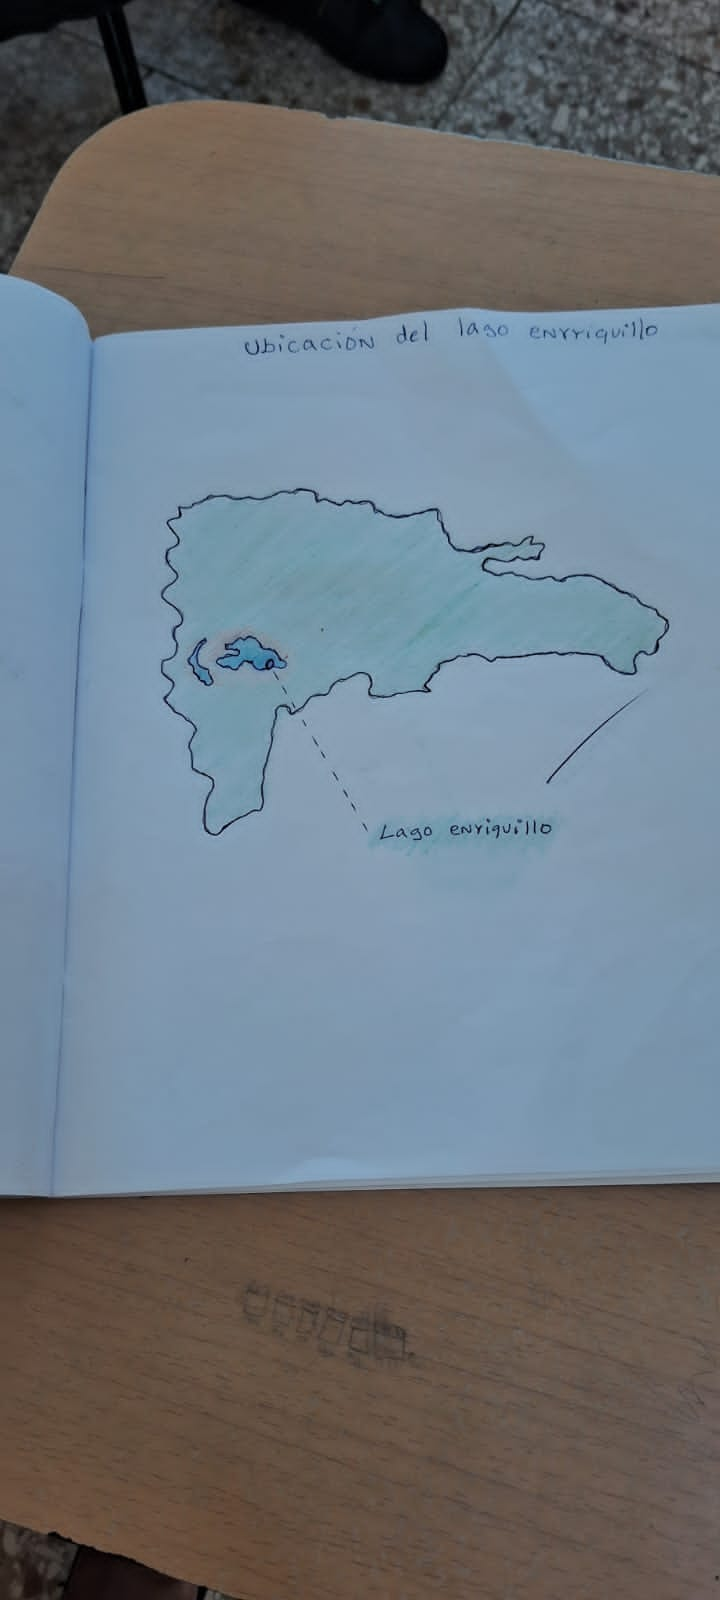 Ubicación del lago enrriquillo
Lago enriquillo